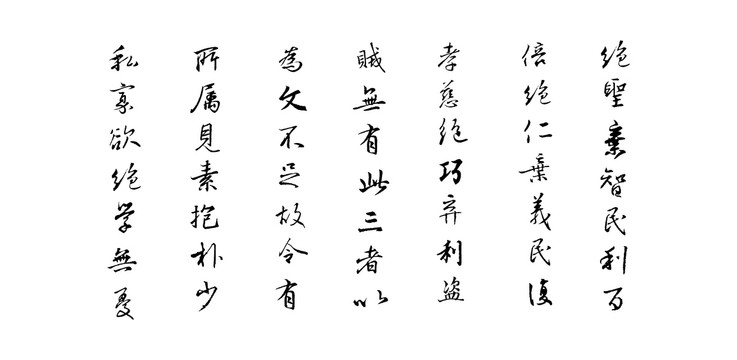 絕聖棄智民利百
倍絕仁棄義民復
孝慈絕巧弃利盜
賊無有此三者以
為文不足故令有
所属見素抱朴少
私寡欲絕学無憂